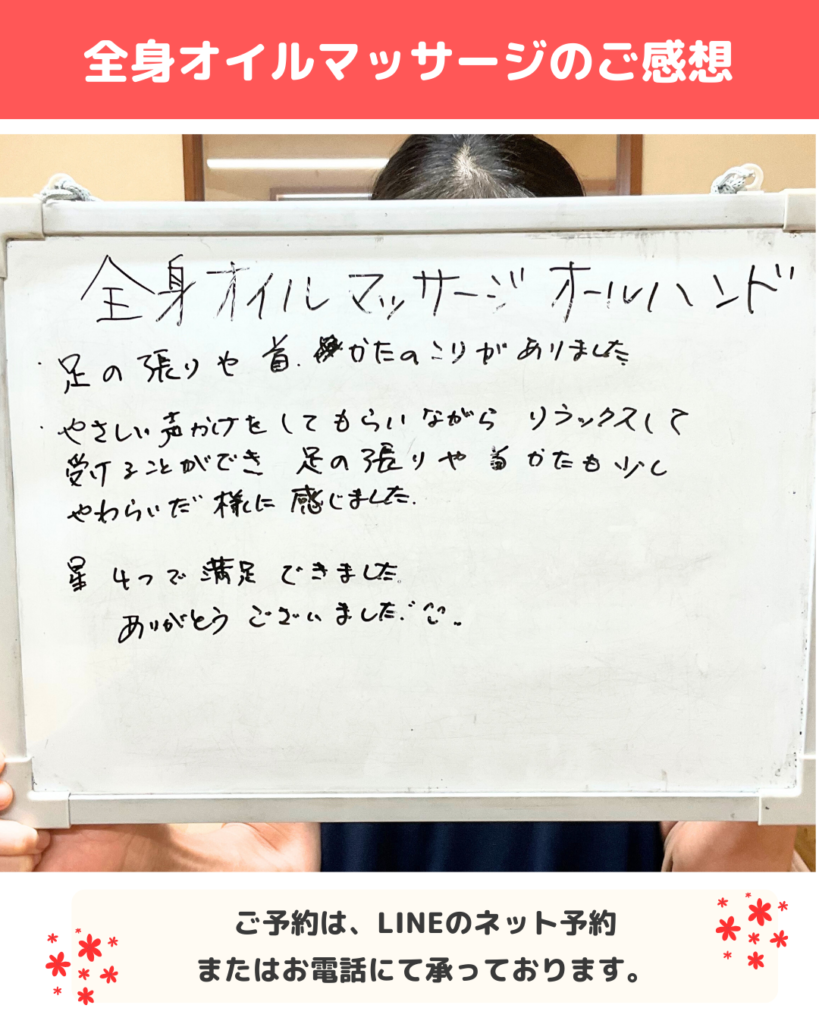 全身オイルマッサージのご感想
全身オイルマッサージ オールハンド
・足の張りや首、かたのこりがありました
・やさしい声かけをしてもらいながら リラックスして
受けることができ 足の張りや首かたも少し
やわらいだ様に感じました。
星 4つで満足できました。
ありがとうございました。
ご予約は、LINEのネット予約
またはお電話にて承っております。